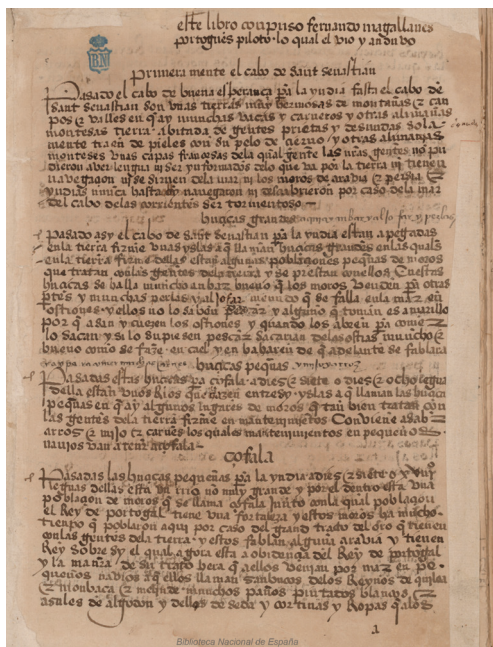 este libro conpuso fernando magallanes
portogues piloto lo qual el vio y anduvo
BN
primera mente el cabo de sant sevastian
Pasado el cabo de buena esperança pa la yndia fasta el cabo de
sant sevastian son unas tierras muy hermosas de montañas & can
pos & valles en q ay munchas vacas y carneros y otras alimañas
montesas tierra abitada de gentes prietas y desnudas sola
mente traen de pieles con su pelo de ciervo y otras alimañas
monteses unas capas francesas de la qual gente las nras gentes no pu
dieron aber lengua ni ser ynformados de lo que va por la tierra ni tienen
navegaçion ni se sirven de la mar ni los moros de arabia & persia &
yndias nunca hasta navegaron ni descubrieron por caso de la mar
del cabo de las corrientes ser tormentoso
huçicas grandes
Pasado asy el cabo de sant sevastian pa la yndia estan apegadas
en la tierra firme unas yslas a q llaman huçicas grandes en las quales
en la tierra firme dellas estan algunas poblaçiones pequas de moros
que tratan con las gentes de la tierra y se prestan con ellos En estas
huçicas se halla muncho anbar bueno q los moros venden pa otras
ptes y munchas perlas y aljofar menudo q se falla en la mar en
ostiones y ellos no lo saben pescar y alguno q toman es amarillo
por q asan y cuezen los ostiones y quando los abren pa comer
lo sacan y si lo supiesen pescar sacarian dellos muncho &
bueno como se faze en cael y en baharen de q adelante se fablara
huçicas pequas
Pasadas estas huçicas pa çofala a diez & siete o diez & ocho leguas
della estan unos Rios que fazen entre sy yslas a q llaman las huçicas
pequeñas en q ay algunos lugares de moros q tan bien tratan con
las gentes de la tierra firme en mantenimientos
arros & mijo & carnes los quales mantenimientos en pequeños
navios van a a çofala
Çofala
Pasadas las huçicas pequeñas pa la yndia a diez & siete o xviij
leguas dellas esta un rrio no muy grande y por el dentro esta una
poblaçion de moros q se llama çofala junto con la qual poblaçion
el Rey de portogal tiene una fortaleza y estos moros ha muncho
tienpo q poblaron aqui por caso del grand trato del oro q tienen
con las gentes de la tierra y estos fablan alguna arabia y tienen
Rey sobre sy el qual agora esta a obidençia del Rey de portogal
y la manra de su trato hera q a ellos venian por mar en pe
queños navios a q ellos llaman sanbucos de los Reynos de quiloa
& monbaça & melinde munchos paños pintados blancos &
asules de algodon y dellos de seda y cortinas y Ropas q a los
1
Biblioteca Nacional de España